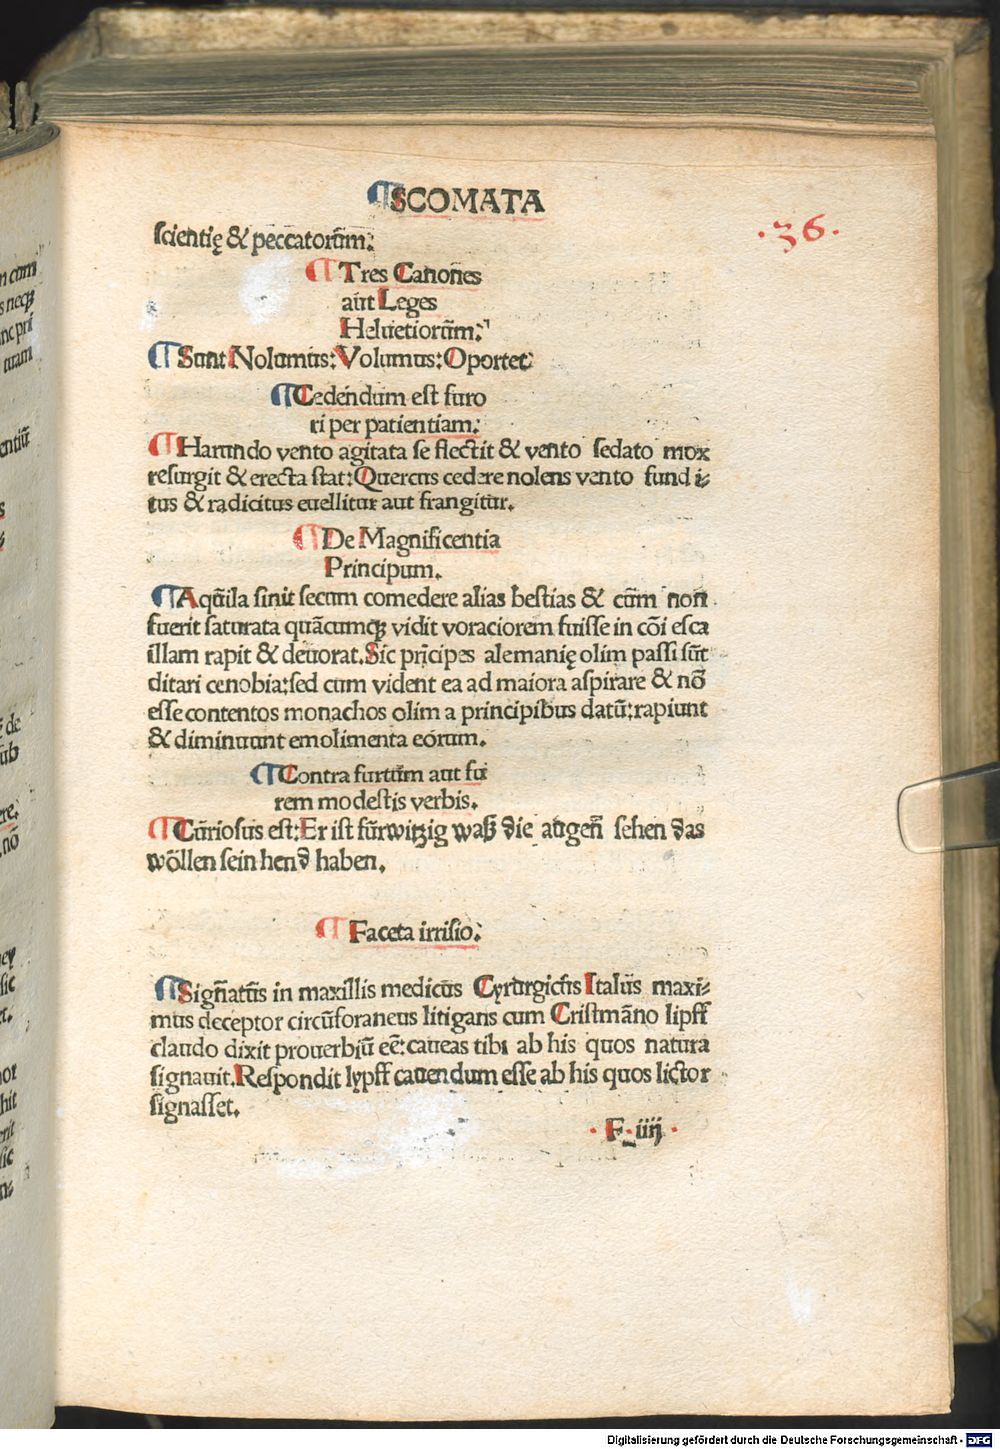 ¶SCOMATA
·36·
scientię & peccatorūm:
¶Tres Canones
aut Leges
Heluetiorum:
¶Sunt Nolumus: Volumus: Oportet:
¶Cedendum est furo
ri per patientiam:
¶Harundo vento agitata se flectit & vento sedato mox
resurgit & erecta stat: Quercus cedere nolens vento fundi⸗
tus & radicitus euellitur aut frangitur.
¶De Magnificentia
Principum.
¶Aquila sinit secum comedere alias bestias & cum non
fuerit saturata quācumqꝫ vidit voraciorem fuisse in cōi esca
illam rapit & deuorat. Sic prīcipes alemanię olim passi sūt
ditari cenobia: sed cum vident ea ad maiora aspirare & nō
esse contentos monachos olim a principibus datū: rapiunt
& diminuunt emolimenta eorum.
¶Contra furtum aut fu
rem modestis verbis.
¶Curiosus est: Er ist fürwitzig waß die augen sehen das
wöllen sein hend haben.
¶Faceta irrisio:
¶Signatus in maxillis medicus Cyrurgicus Italus maxi⸗
mus deceptor circūforaneus litigans cum Cristmāno lipff
claudo dixit prouerbiū eē: caueas tibi ab his quos natura
signauit. Respondit lypff cauendum esse ab his quos lictor
signasset.
·F iiij·
Digitalisierung gefördert durch die Deutsche Forschungsgemeinschaft - DFG